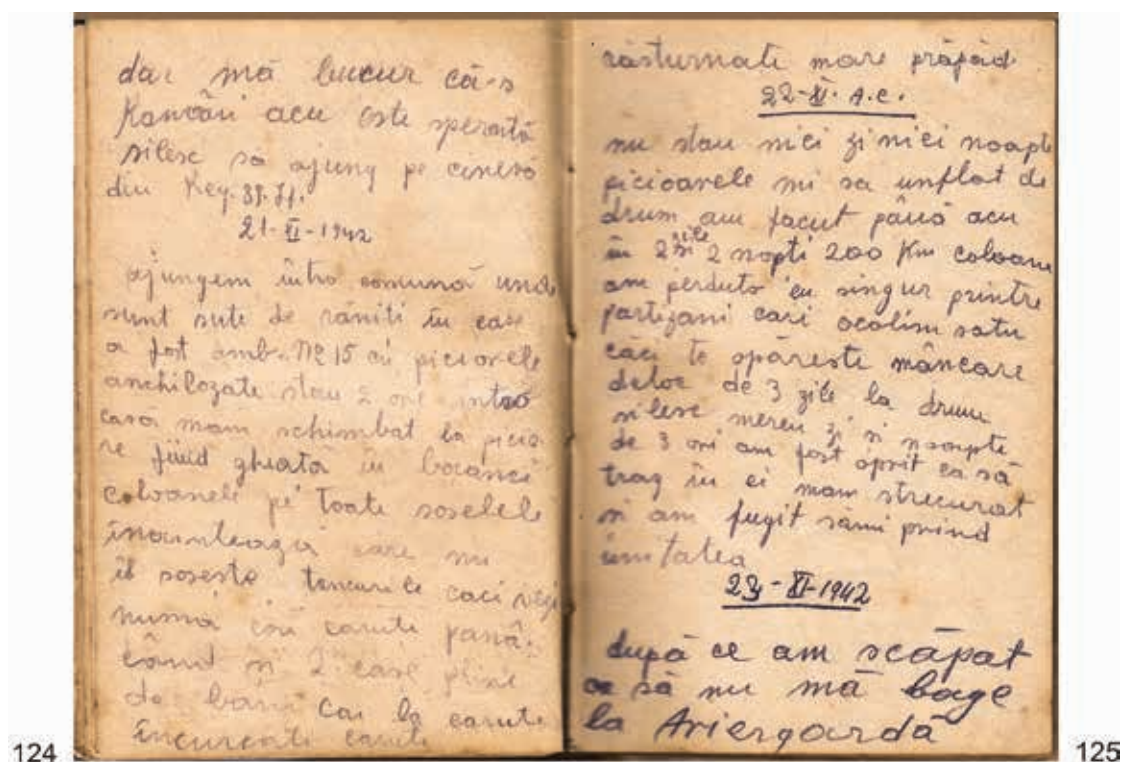 dar mă bucur că-s
acu este speranță
silesc să ajung pe cineva
din Reg. 38. Jf.
21-XI-1942
ajungem intro comună und
sunt sute de răniti în care
a fost amb. № 15 cu picioarele
anchilozate stau 2 ore intro
casă mam schimbat la picio
re fiind ghiată în bocanci
coloanele pe toate soselele
inainteaza care nu
il soseste tancurile caci vezi
numa căruti pană
când si 2 case pline
de bani cai la carute
incurcati carute
124
răsturnati mare prăpăd
22-XI. A.C.
nu stau nici zi nici noapte
picioarele mi sa unflat de
drum am facut până acu
în 2 zile 2 nopti 200 Km coloana
am perduto eu singur printre
partizani cari ocolim satu
căci te opăreste mâncare
deloc de 3 zile la drum
silesc mereu zi si noapte
de 3 ori am fost oprit ca să
trag în ei mam strecurat
si am fugit sămi prind
unitatea
23-XI-1942
după ce am scăpat
ca să nu mă bage
la Ariergardă
125